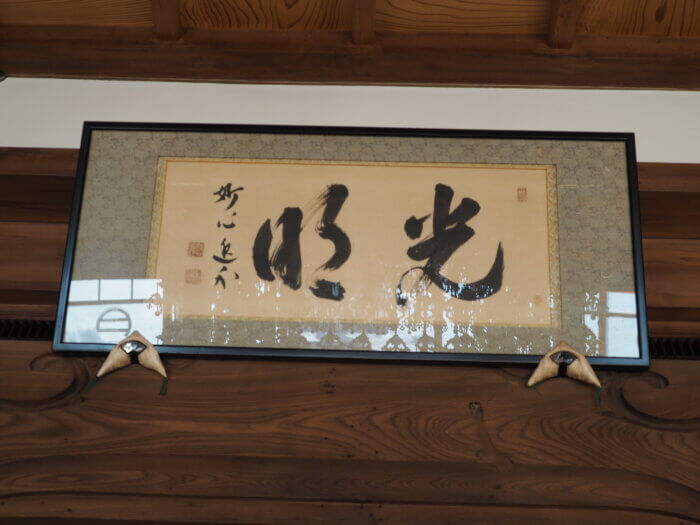 光明
妙心